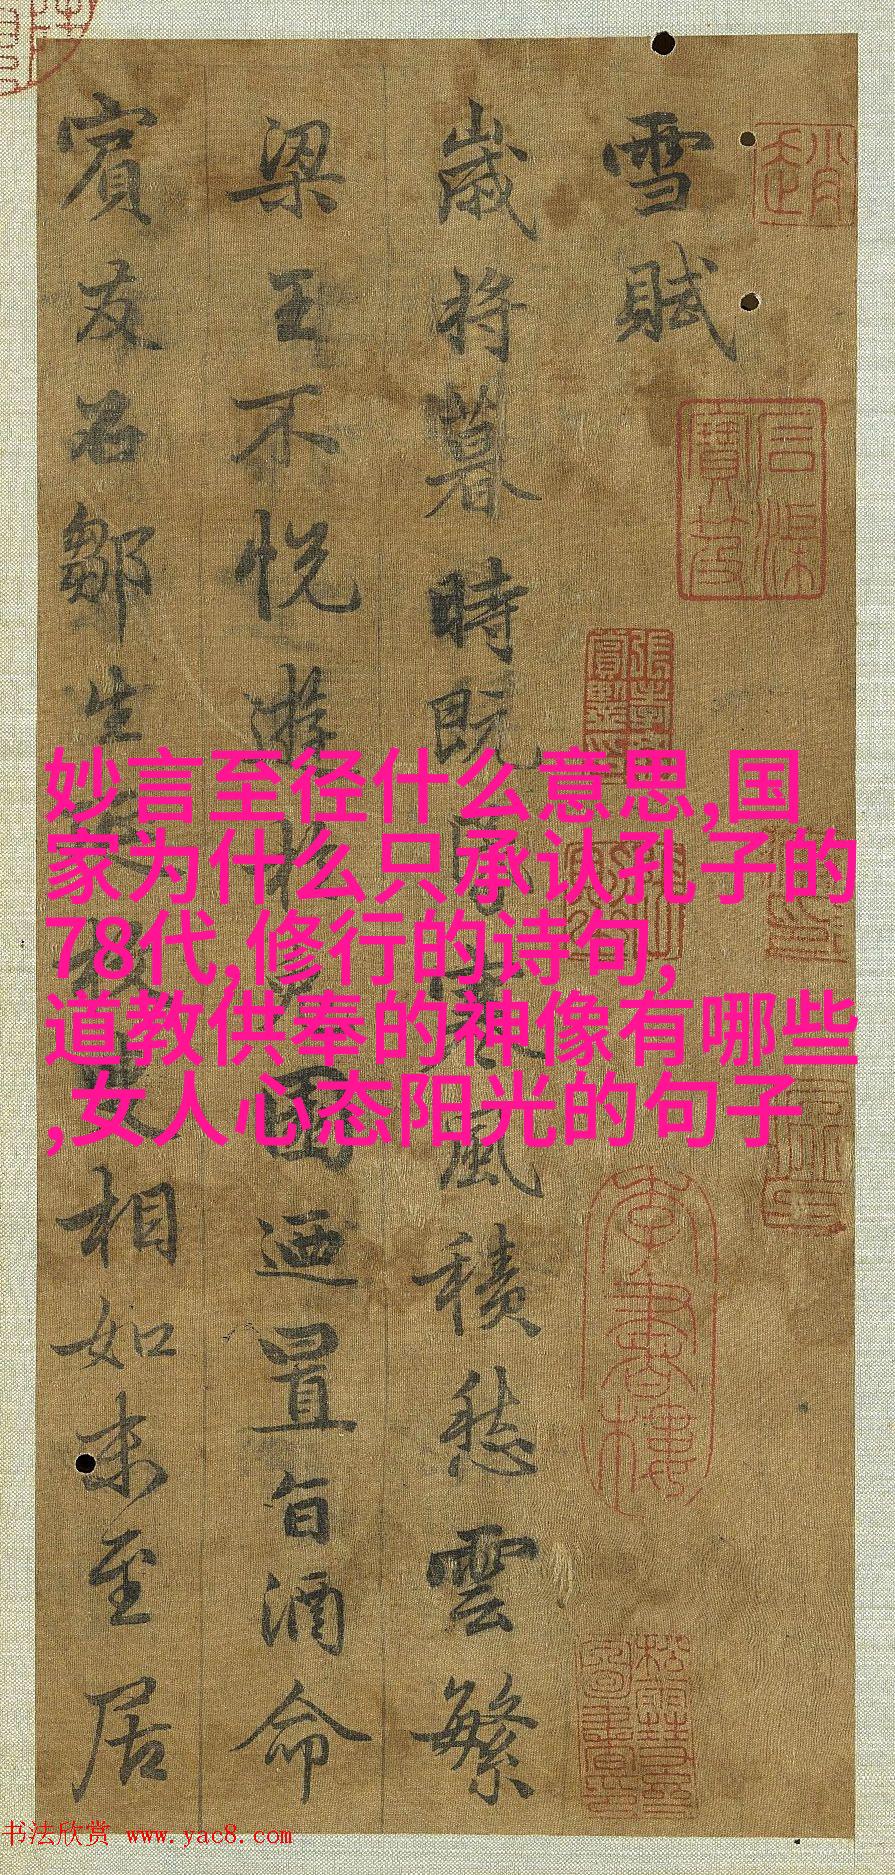 雪賦
歲將暮時既寒風積愁雲繁
梁王不悅遊於園迺置旨酒命
賓友召鄒生枚叟相如末至居
妙言至径什么意思,国
家为什么只承认孔子的
78代,修行的诗句,
道教供奉的神像有哪些
,女人心态阳光的句子
书法欣赏 www.yac8.com